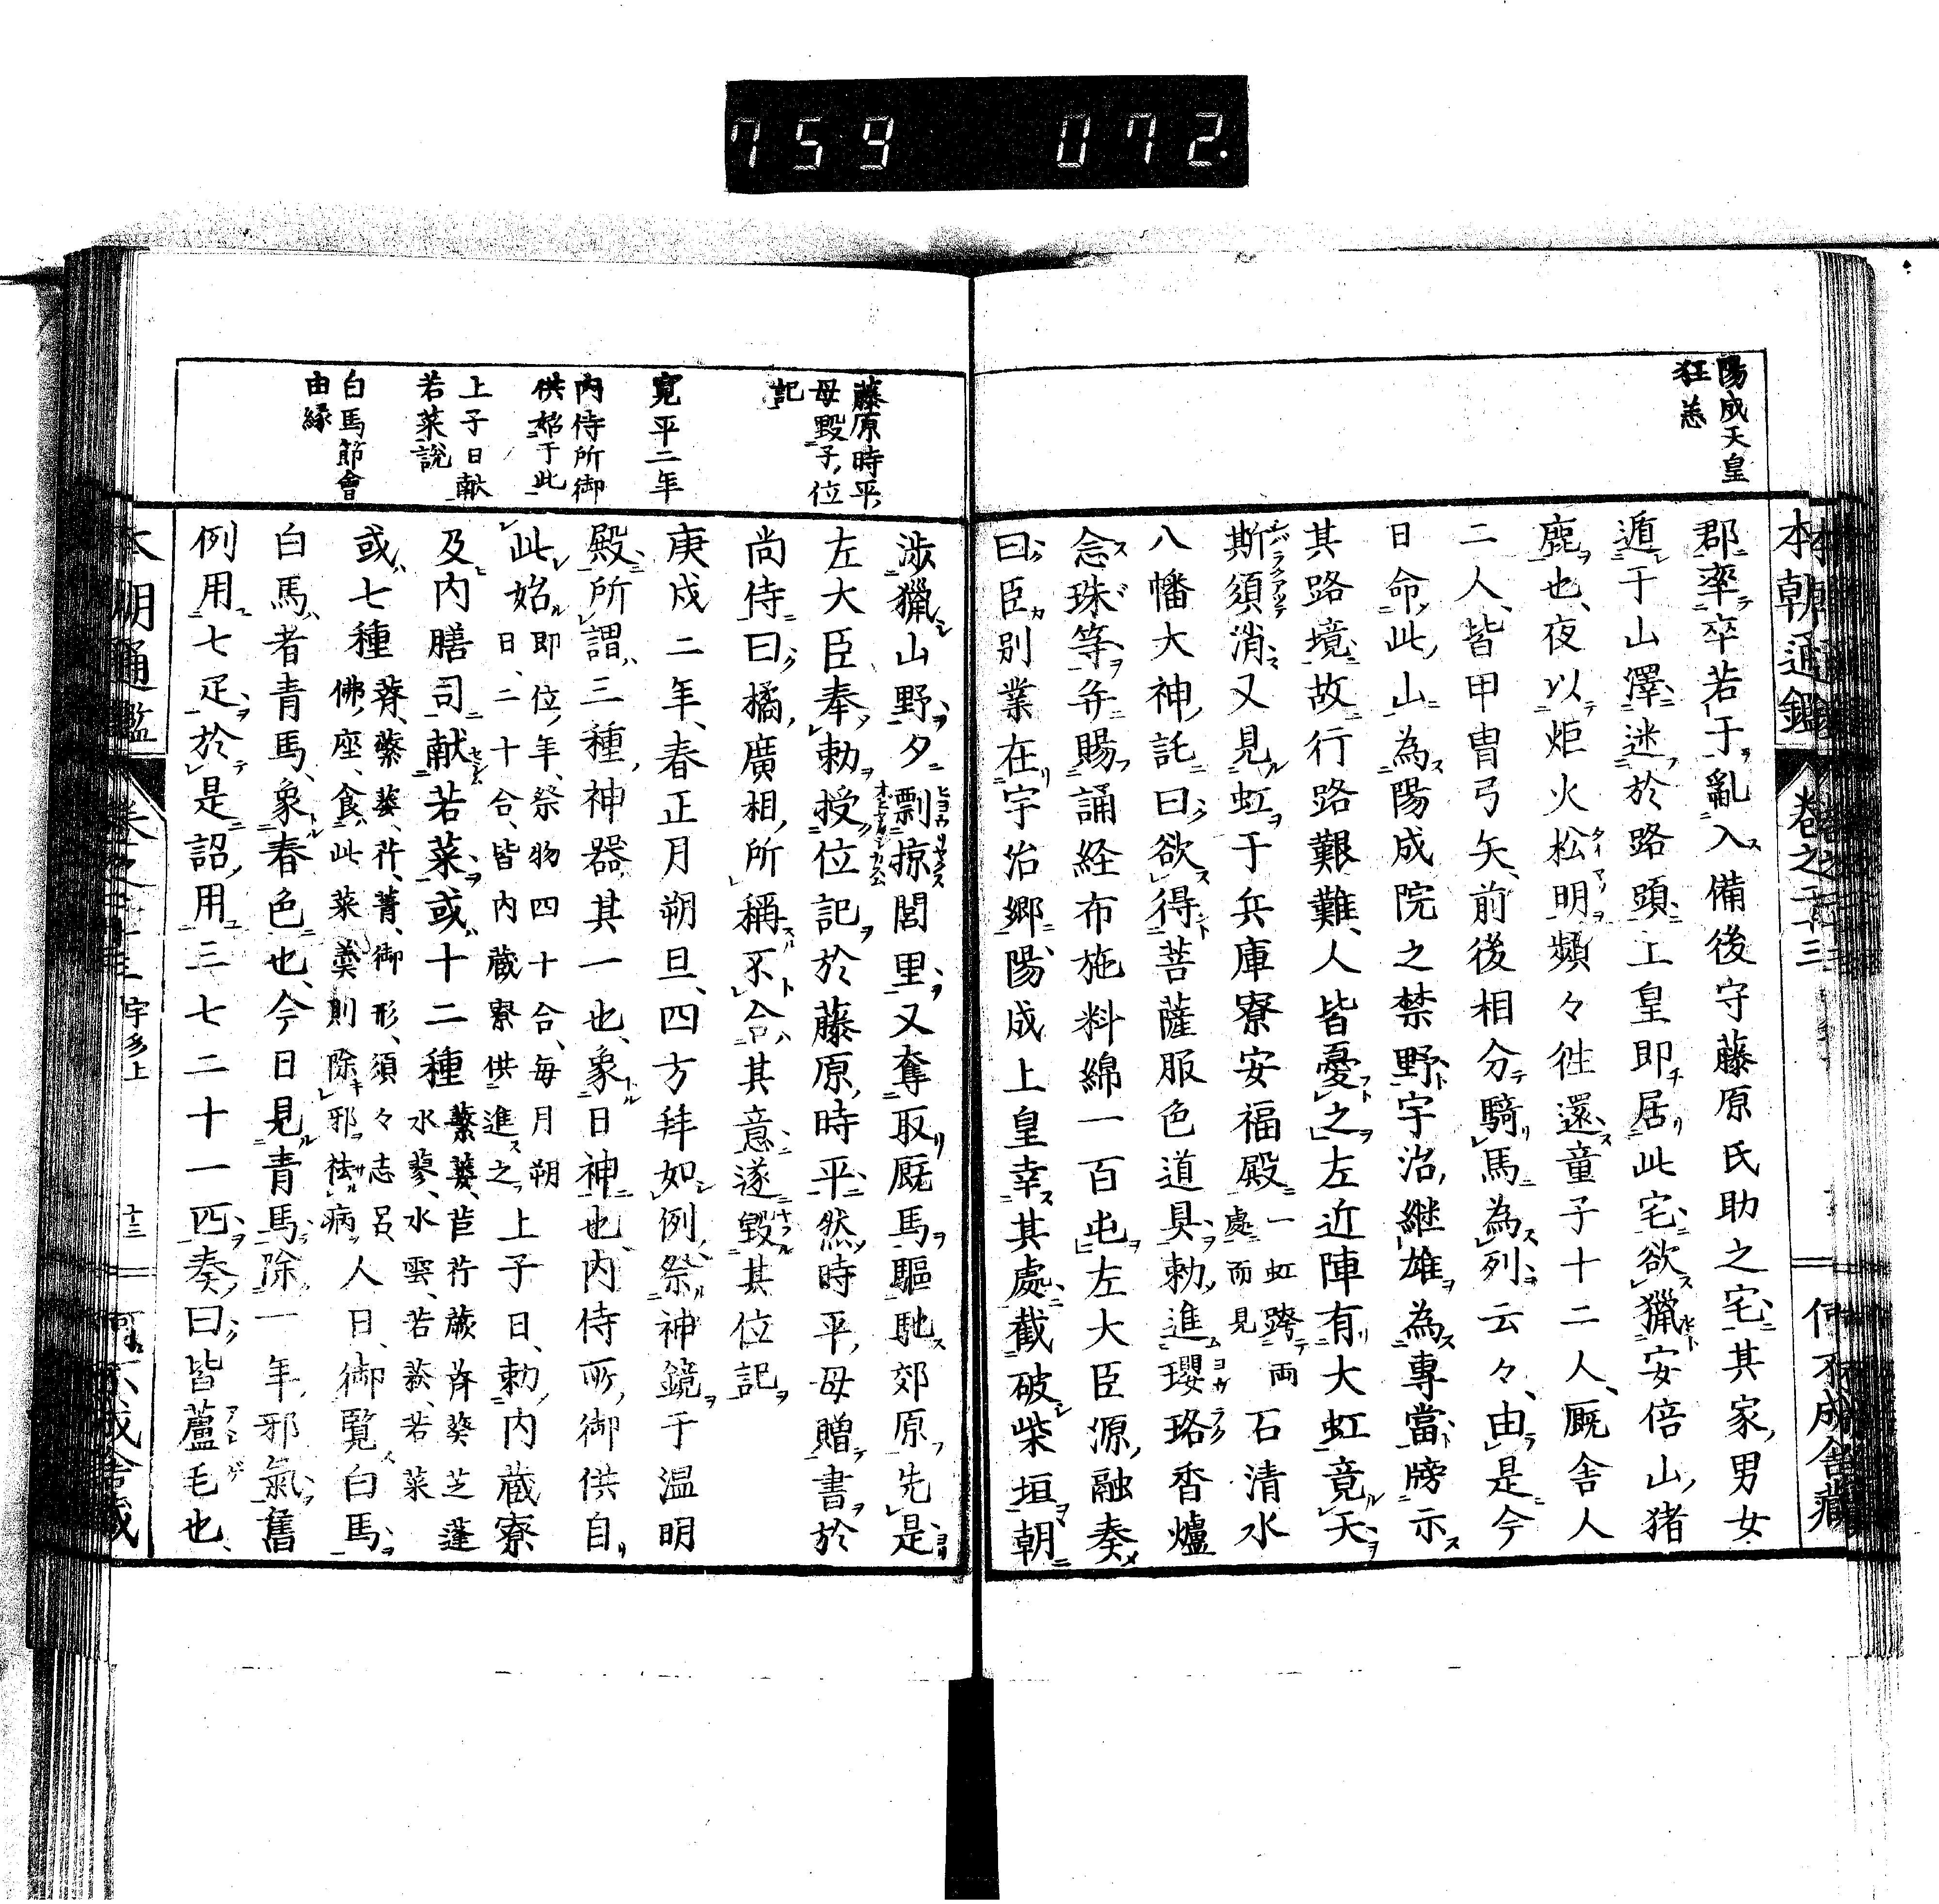 759 072.
陽成天皇
狂恣
本朝通鑑 卷之二十三 何不成舎蔵
郡率卒若于亂入備後守藤原氏助之宅其家男女
遁于山澤迷於路頭上皇即居此宅欲獵安倍山猪
鹿也夜以炬火松明頻々徃還童子十二人厩舎人
二人皆甲冑弓矢前後相分騎馬為列云々由是今
日命此山為陽成院之禁野宇治継雄為專當牓示
其路境故行路艱難人皆憂之左近陣有大虹竟天
斯須消又見虹于兵庫寮安福殿一虹跨両
處而見石清水
八幡大神託曰欲得菩薩服色道具勅進瓔珞香爐
念珠等并賜誦経布施料綿一百屯左大臣源融奏
曰臣别業在宇治郷陽成上皇幸其處截破柴垣朝
藤原時平
母毀子位
記
寛平二年
内侍所御
供始于此
上子日献
若菜説
白馬節會
由縁
涉獵山野夕剽掠閭里又奪取厩馬驅馳郊原先是
左大臣奉勅授位記於藤原時平然時平母贈書於
尚侍曰橘廣相所稱不合其意遂毀其位記
庚戌二年春正月朔旦四方拜如例祭神鏡于温明
殿所謂三種神器其一也象日神也内侍所御供自
此始即位年祭物四十合毎月朔
日二十合皆内蔵寮供進之上子日勅内蔵寮
及内膳司献若菜或十二種蘩蔞苣芹蕨薺葵芝蓬
水蓼水雲若菘若菜
或七種薺蘩蔞芹菁御形須々志呂
佛座食此菜羹則除邪祛病人日御覧白馬
白馬者青馬象春色也今日見青馬除一年邪氣舊
例用七疋於是詔用三七二十一匹奏曰皆蘆毛也
本朝通鑑 宇多上 十三 何不成舎蔵